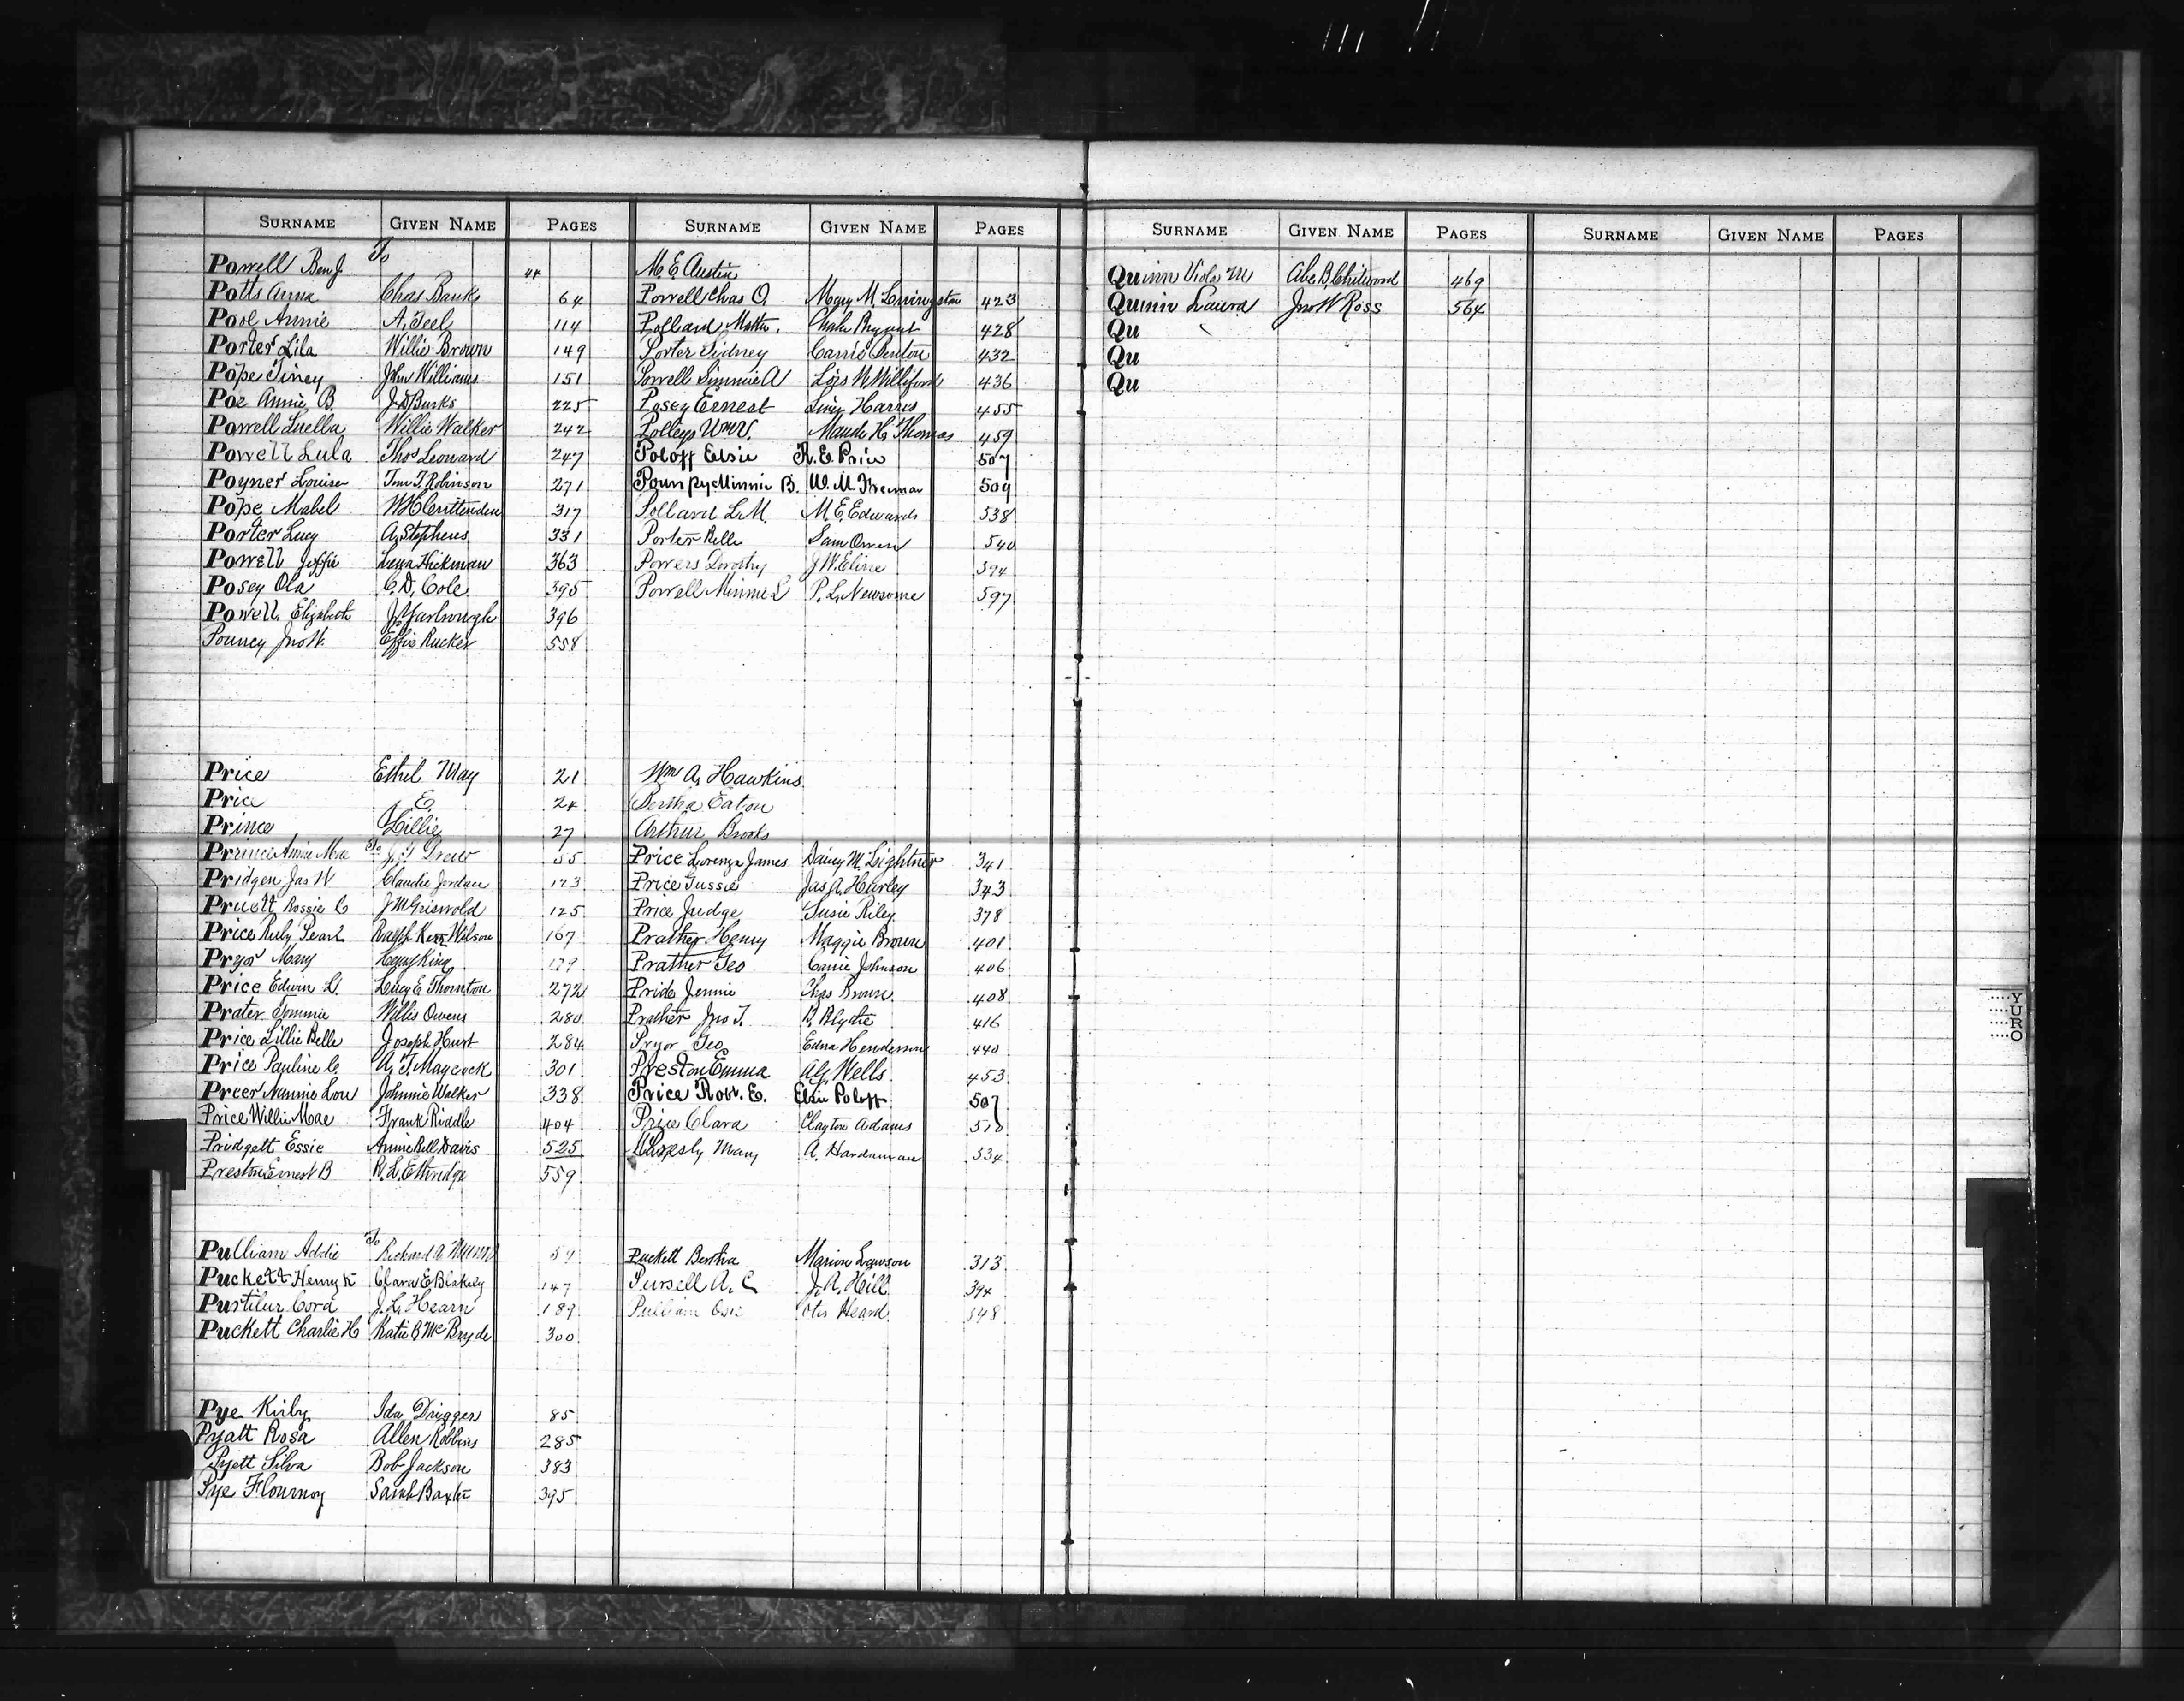 SURNAME GIVEN NAME PAGES SURNAME GIVEN NAME PAGES
Powell Benj To 44 M. E. Austin
Potts Anna Chas Banks 64 Powell Chas O. Mary M. Livingston 423
Pool Annie A. Teel 114 Pollard Mattie. Charlie Bryant 428
Porter Lila Willie Brown 149 Porter Sidney Carrie Benton 432
Pope Tiney John Williams 151 Powell Simmie A Lois N Williford 436
Poe Annie B. J. D Burks 225 Posey Ernest Harris 455
Powell Luella Willie Walker 242 Polleys Wm V. Maude H. Thomas 459
Powell Lula Thos Leonard 247 Poloff Elsie R. E. Price 507
Poyner Louise T. Robinson 271 Pounpy Minnie B. W. M. 509
Pope Mabel W H Crittenden 317 Pollard L. M. M. E. Edwards 538
Porter Lucy A. Stephens 331 Porter Belle Sam Owen 540
Powell Jeffie Lena Hickman 363 Powers Dorothy J. W. Cline 594
Posey Ola C. D. Cole 395 Powell Minnie L P. L. Newsome 597
Powell. Elizabeth J. Yarbrough 396
Pouncy Jno W. Effie Rucker 558
Price Ethel May 21 Wm A. Hawkins.
Price E. 24 Bertha Eaton
Prince Lillie 27 Arthur Brooks
Prince Annie Mae To J. T Drew 55 Price Lorenza James Daisy M. Lightner 341
Pridgen Jas W Claudie Jordan 123 Price Gussie Jas. A. Hurley 343
Pruett Rossie C J M Griswold 125 Price Judge Susie Riley. 378
Price Ruby Pearl Ralph Kerr Wilson 167 Prather Henry Maggie Brown 401
Pryor Mary Henry King 179 Prather Geo Carrie Johnson 406
Price Edwin L. Lucy E Thornton 272 Pride Jennie Chas Brown. 408
Prater. Tommie Willis Owens 280 Prather Jno T. B. Blythe 416
Price Lillie Belle Joseph Hurt 284 Pryor Geo Edna Henderson 440
Price Pauline C A. T. Maycock 301 Preston Emma Wells 453
Preer Nannie Lou Johnnie Walker 338 Price Robt. E. Elsie Poloff 507
Price Willie Mae Frank Riddle 404 Price Clara Clayton Adams 510
Pridgett Essie Annie Bell Davis 525 Mary A. Hardaman 534
Preston Ernest B R. L. Ethridge 559
Pulliam Addie To Richard A 59 Puckett Bertha Marion Lawson 313
Puckett Henry K Clara E Blakely 147 Pursell A. C J. A. Hill. 394
Cora J. L. Hearn 189 Pulliam Otis Heard. 548
Puckett Charlie H Katie B McBryde 300
Pye Kirby Ida Driggers 85
Pyatt Rosa Allen Robbins 285
Pyett Silva Bob Jackson 383
Pye Flournoy Sarah Baxter 395
SURNAME GIVEN NAME PAGES SURNAME GIVEN NAME PAGES
Quinn Viola M Abe B. Chitwood 469
Quinn Laura Jno W Ross 564
Qu
Qu
Qu
Y
U
R
O